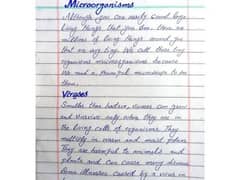 Microorganisms
Although you can easily count large
living things that you see. There are
millions of living things around you
that are very tiny. We call these tiny
organisms microorganisms because
We need a powerful microscope to see
them.
Viruses
Smaller than bacteria, viruses can grow
and survive only when they are in
the living cells of organisms. They
multiply in warm and moist places.
They are harmful to animals and
plants and can cause many diseases.
Some illnesses caused by a virus in